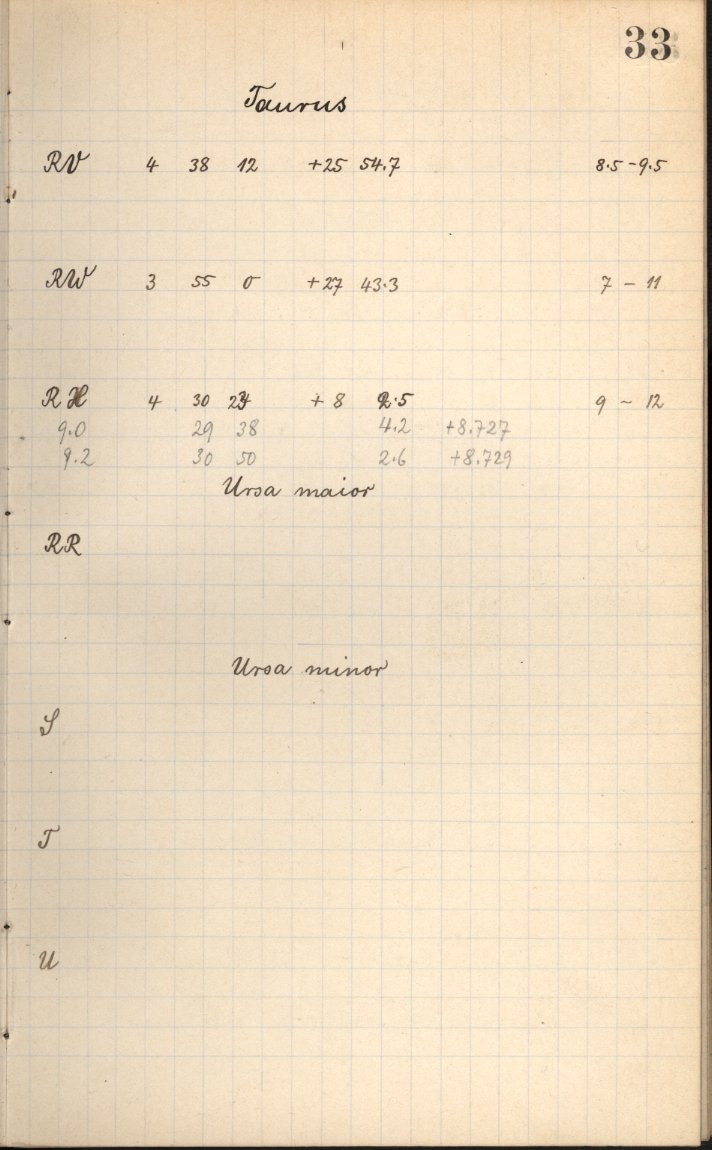 33
Taurus
RV 4 38 12 +25 54.7 8.5-9.5
RW 3 55 0 +27 43.3 7 - 11
R 4 30 + 8 2.5 9 - 12
9.0 29 38 4.2 +8.727
9.2 30 50 2.6 +8.729
Ursa maior
RR
Ursa minor
S
T
U